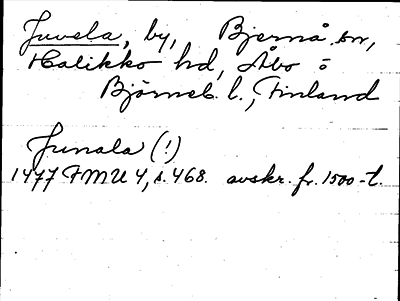 Juvela, by, Bjernå sn,
Halikko hd, Åbo o
Björneb. l., Finland
Junala (!)
1477 FMU 4, s. 468. avskr. fr. 1500-t.